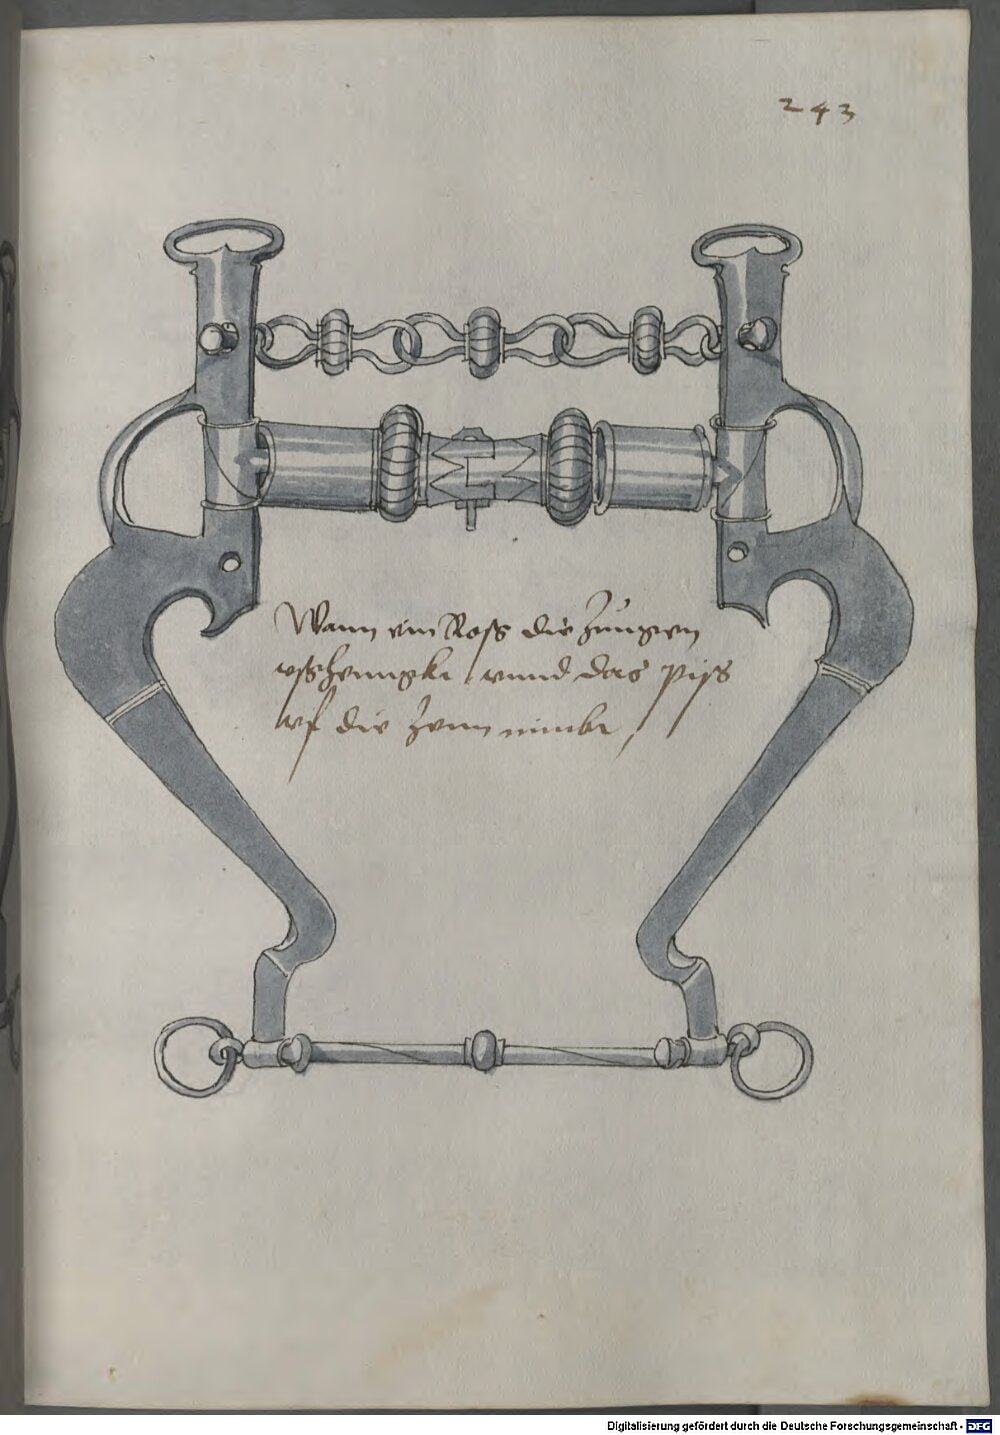 243
Wann ein Ross die Zungen
vsshenngkt vnnd das piss
vf die Zenn nimbt,
Digitalisierung gefördert durch die Deutsche Forschungsgemeinschaft - DFG